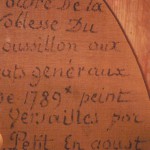 Noblesse Du
Roussillon aux
états generaux
De 1789* peint
Versailles par
Petit En aoust